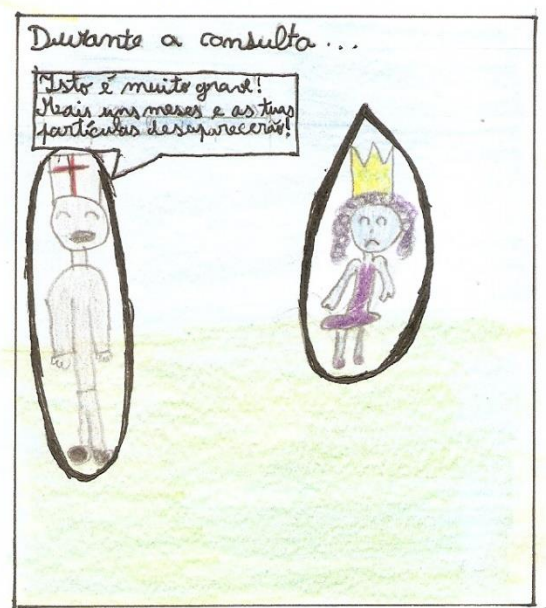 Durante a consulta...
Isto é muito grave!
Mais uns meses e as tuas
partículas desaparecerão!